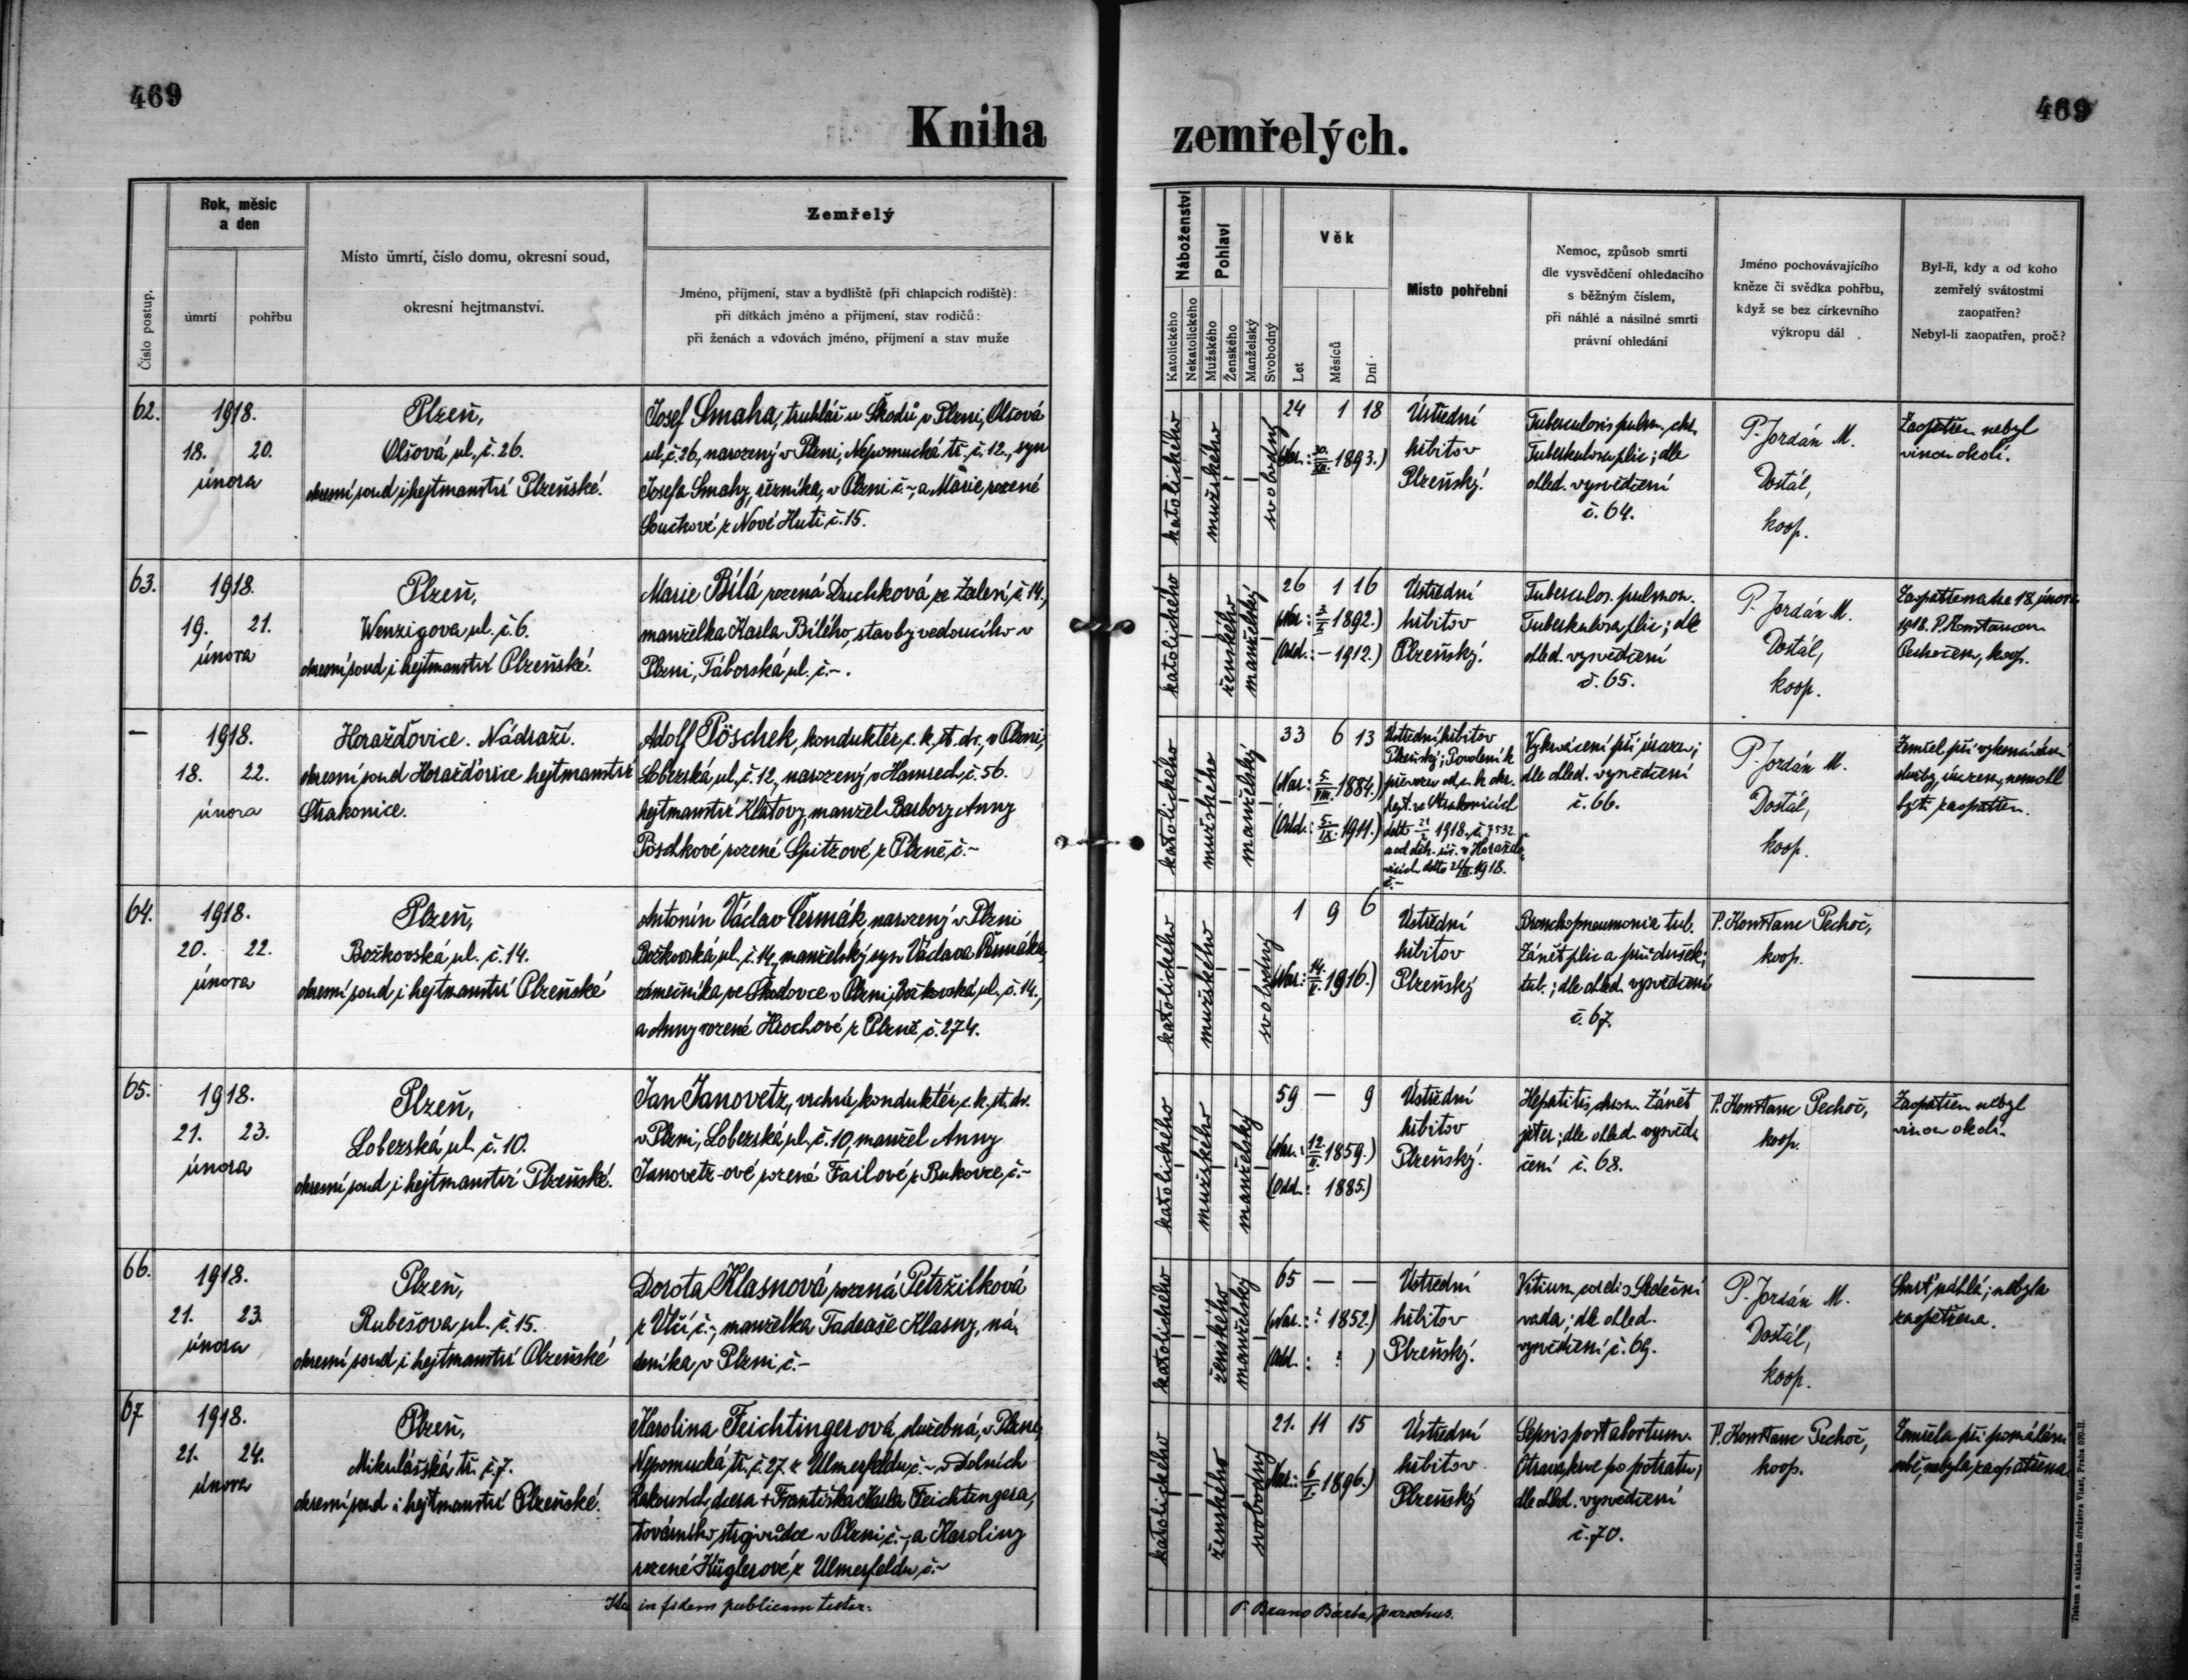 469
469
Kniha
zemřelých.
Číslo postup.
Rok, měsíc
a den
úmrtí
pohřbu
Místo úmrtí, číslo domu, okresní soud,
okresní hejtmanství.
Zemřelý
Jméno, příjmení, stav a bydliště (při chlapcích rodiště):
při dítkách jméno a příjmení, stav rodičů:
při ženách a vdovách jméno, příjmení a stav muže
Náboženství
Katolického
Nekatolického
Pohlaví
Mužského
Ženského
Manželský
Svobodný
Věk
Let
Měsíců
Dní
Místo pohřební
Nemoc, způsob smrti
dle vysvědčení ohledacího
s běžným číslem,
při náhlé a násilné smrti
právní ohledání
Jméno pochovávajícího
kněze či svědka pohřbu,
když se bez církevního
výkropu dál
Byl-li, kdy a od koho
zemřelý svátostmi
zaopatřen?
Nebyl-li zaopatřen, proč?
62.
1918.
18. 20.
února
Plzeň,
Olšová ul. č. 26.
okresní soud i hejtmanství Plzeňské.
Josef Smaha, truhlář u Škodů v Plzni, Olšová
ul. č. 26, narozený v Plzni, Nepomucká tř. č. 12., syn
Josefa Smahy, řezníka, v Plzni č. – a Marie rozené
Součkové z Nové Huti č. 15.
katolického
mužského
svobodný
24 1 18
(Nar.: 1893.)
Ústřední
hřbitov
Plzeňský.
Tuberculosis pulm. chr.
Tuberkulosa plic; dle
ohled. vysvědčení
č. 64.
P. Jordán M.
Dostál,
koop.
Zaopatřen nebyl
vinou okolí.
63.
1918.
19. 21.
února
Plzeň,
Wenzigova ul. č. 6.
okresní soud i hejtmanství Plzeňské.
Marie Bílá rozená Duchková ze Zálení č. 14.,
manželka Karla Bílého, stavbyvedoucího v
Plzni, Táborská ul. č. – .
katolického
ženského
manželský
26 1 16
(Nar.: 3/I 1892.)
(Odd.: – 1912.)
Ústřední
hřbitov
Plzeňský.
Tuberculos. pulmon.
Tuberkulosa plic; dle
ohled. vysvědčení
č. 65.
P. Jordán M.
Dostál,
koop.
Zaopatřena dne 18. února
1918. P. Konstancem
Pechočem, koop.
–
1918.
18. 22.
února
Horažďovice. Nádraží.
okresní soud Horažďovice hejtmanství
Strakonice.
Adolf Pöschek, konduktér c. k. st. dr. v Plzni,
Lobezská ul. č. 12, narozený v Hamrech č. 56.
hejtmanství Klatovy, manžel Barbory Anny
Pöschkové rozené Spitzové z Plzně č. –
katolického
mužského
manželský
33 6 13
(Nar.: 5/VIII. 1884.)
(Odd.: 5/IX. 1911.)
Ústřední hřbitov
Plzeňský; Povolení k
převozu od c. k. okr.
hejt. ve Strakonicích
ddto 21/2 1918. č. 7532.
a od děk. úř. v Horažďo-
vicích ddto 21/II. 1918.
č. –
Vykrvácení při úrazu;
dle ohled. vysvědčení
č. 66.
P. Jordán M.
Dostál,
koop.
Zemřel při vykonávání
služby, úrazem, nemohl
býti zaopatřen.
64.
1918.
20. 22.
února
Plzeň,
Božkovská ul. č. 14.
okresní soud i hejtmanství Plzeňské
Antonín Václav Čermák, narozený v Plzni
Božkovská ul. č. 14., manželský syn Václava Čermáka,
zámečníka ve Škodovce v Plzni, Božkovská ul. č. 14.,
a Anny rozené Hrochové z Plzně č. 274.
katolického
mužského
svobodný
1 9 6
(Nar.: 14/V. 1916.)
Ústřední
hřbitov
Plzeňský
Bronchopneumonia tub.
Zánět plic a průdušek;
tub.; dle ohled. vysvědčení
č. 67.
P. Konstanc Pechoč,
koop.
65.
1918.
21. 23.
února
Plzeň,
Lobezská ul. č. 10.
okresní soud i hejtmanství Plzeňské.
Jan Janovetz, vrchní konduktér c. k. st. dr.
v Plzni, Lobezská ul. č. 10, manžel Anny
Janovetz-ové rozené Failové z Bukovce č. –
katolického
mužského
manželský
59 — 9
(Nar.: 12/II. 1859.)
(Odd.: 1885.)
Ústřední
hřbitov
Plzeňský.
Hepatitis chron. Zánět
jater; dle ohled. vysvěd-
čení č. 68.
P. Konstanc Pechoč,
koop.
Zaopatřen nebyl
vinou okolí.
66.
1918.
21. 23.
února
Plzeň,
Rubešova ul. č. 15.
okresní soud i hejtmanství Plzeňské
Dorota Klasnová rozená Petržilková
z Vlčí č. –, manželka Tadeáše Klasny, ná-
deníka v Plzni č. –
katolického
ženského
manželský
65 — —
(Nar.: ? 1852.)
(Odd.: ? )
Ústřední
hřbitov
Plzeňský.
Vitium cordis Srdeční
vada; dle ohled.
vysvědčení č. 69.
P. Jordán M.
Dostál,
koop.
Smrt náhlá; nebyla
zaopatřena.
67
1918.
21. 24.
února
Plzeň,
Mikulášská tř. č. 7.
okresní soud i hejtmanství Plzeňské.
Karolina Feichtingerová, služebná, v Plzni,
Nepomucká tř. č. 27. z Ulmerfeldu č. – v Dolních
Rakousích, dcera + Františka Karla Feichtingera,
továrního strojvůdce v Plzni č. –, a Karoliny
rozené Küglerové z Ulmerfeldu č. –
katolického
ženského
svobodný
21. 11 15
(Nar.: 1896.)
Ústřední
hřbitov
Plzeňský
Sepsis post abortum.
Otrava krve po potratu;
dle ohled. vysvědčení
č. 70.
P. Konstanc Pechoč,
koop.
Zemřela při pomálání
nebyla zaopatřena
in fidem publicam testor:
P. Bruno Bárta, parochus.
Tiskem a nákladem družstva Vlast, Praha 570-II.